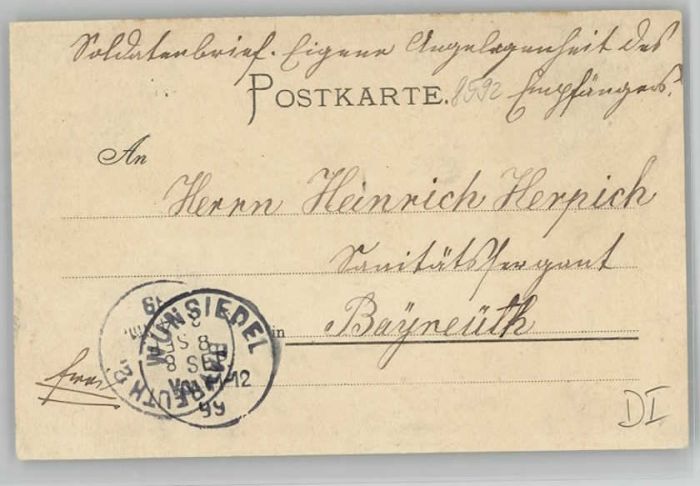 Soldatenbrief. Eigene Angelegenheit des
Empfängers.
POSTKARTE. 8592
An
Herrn Heinrich Herpich
Sanitätssergant
in Bayreuth
WUNSIEDEL
8 SE
11-12
99
DI